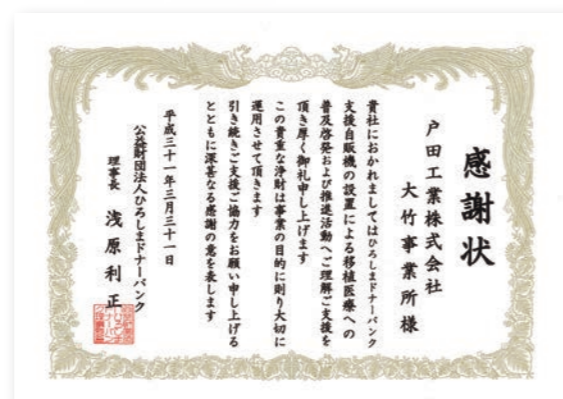 感謝状
戸田工業株式会社
大竹事業所様
貴社におかれましてはひろしまドナーバンク
支援自販機の設置による移植医療への
普及啓発および推進活動へご理解ご支援を
頂き厚く御礼申し上げます
この貴重な浄財は事業の目的に則り大切に
運用させて頂きます
引き続きご支援ご協力をお願い申し上げる
とともに深甚なる感謝の意を表します
平成三十一年三月三十一日
公益財団法人ひろしまドナーバンク
理事長 浅原利正